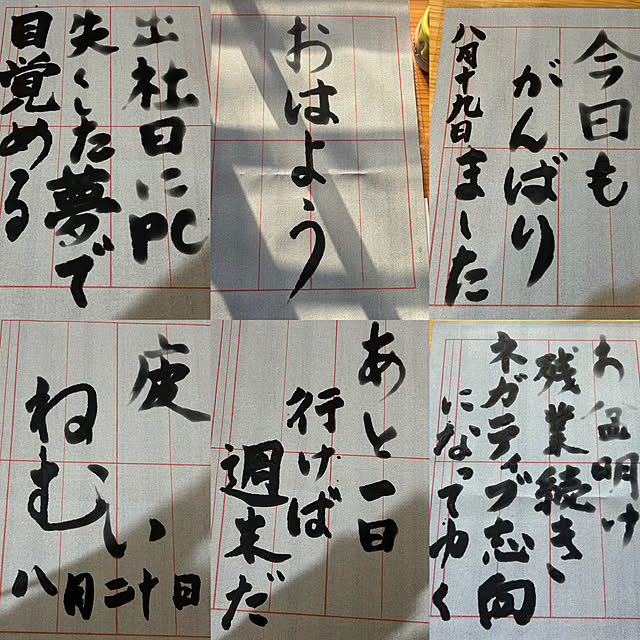 出社日にPC
失くした夢で
目覚める
おはよう
今日も
がんばり
ました
八月十九日
疲
ねむい
八月二十日
あと一日
行けば
週末だ
お盆明け
残業続き、
ネガティブ志向
になってゆく